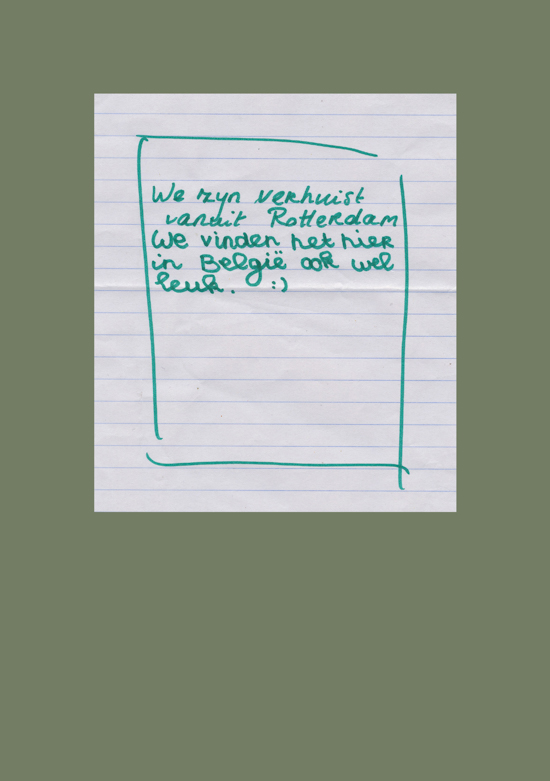 We zijn verhuist
vanuit Rotterdam
We vinden het hier
in België ook wel
leuk. :)